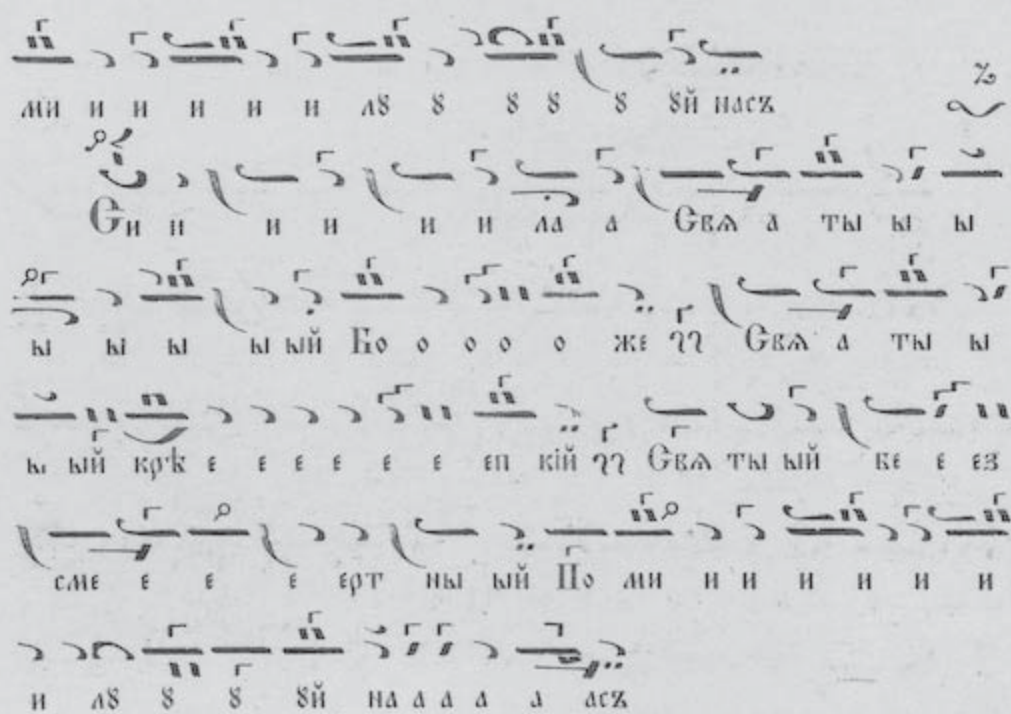 ми и и и и и лꙋ ꙋ ꙋ ꙋ ꙋ ꙋй насъ
Си и и и и и ла а Свѧ а ты ы ы
ы ы ы ы ый Бо о о о о же Свѧ а ты ы
ы ый крѣ е е е е е еп кій Свѧ ты ый бе е ез
сме е е е ерт ны ый По ми и и и и и и
и лꙋ ꙋ ꙋ ꙋй на а а а а асъ